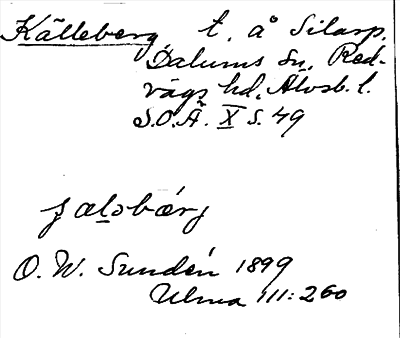 Källeberg t. å Silarp.
Dalums Sn, Red-
vägs hd. Älvsb. l.
S.O.Ä. X s. 49
O. W. Sundén 1899
Ulma III: 260